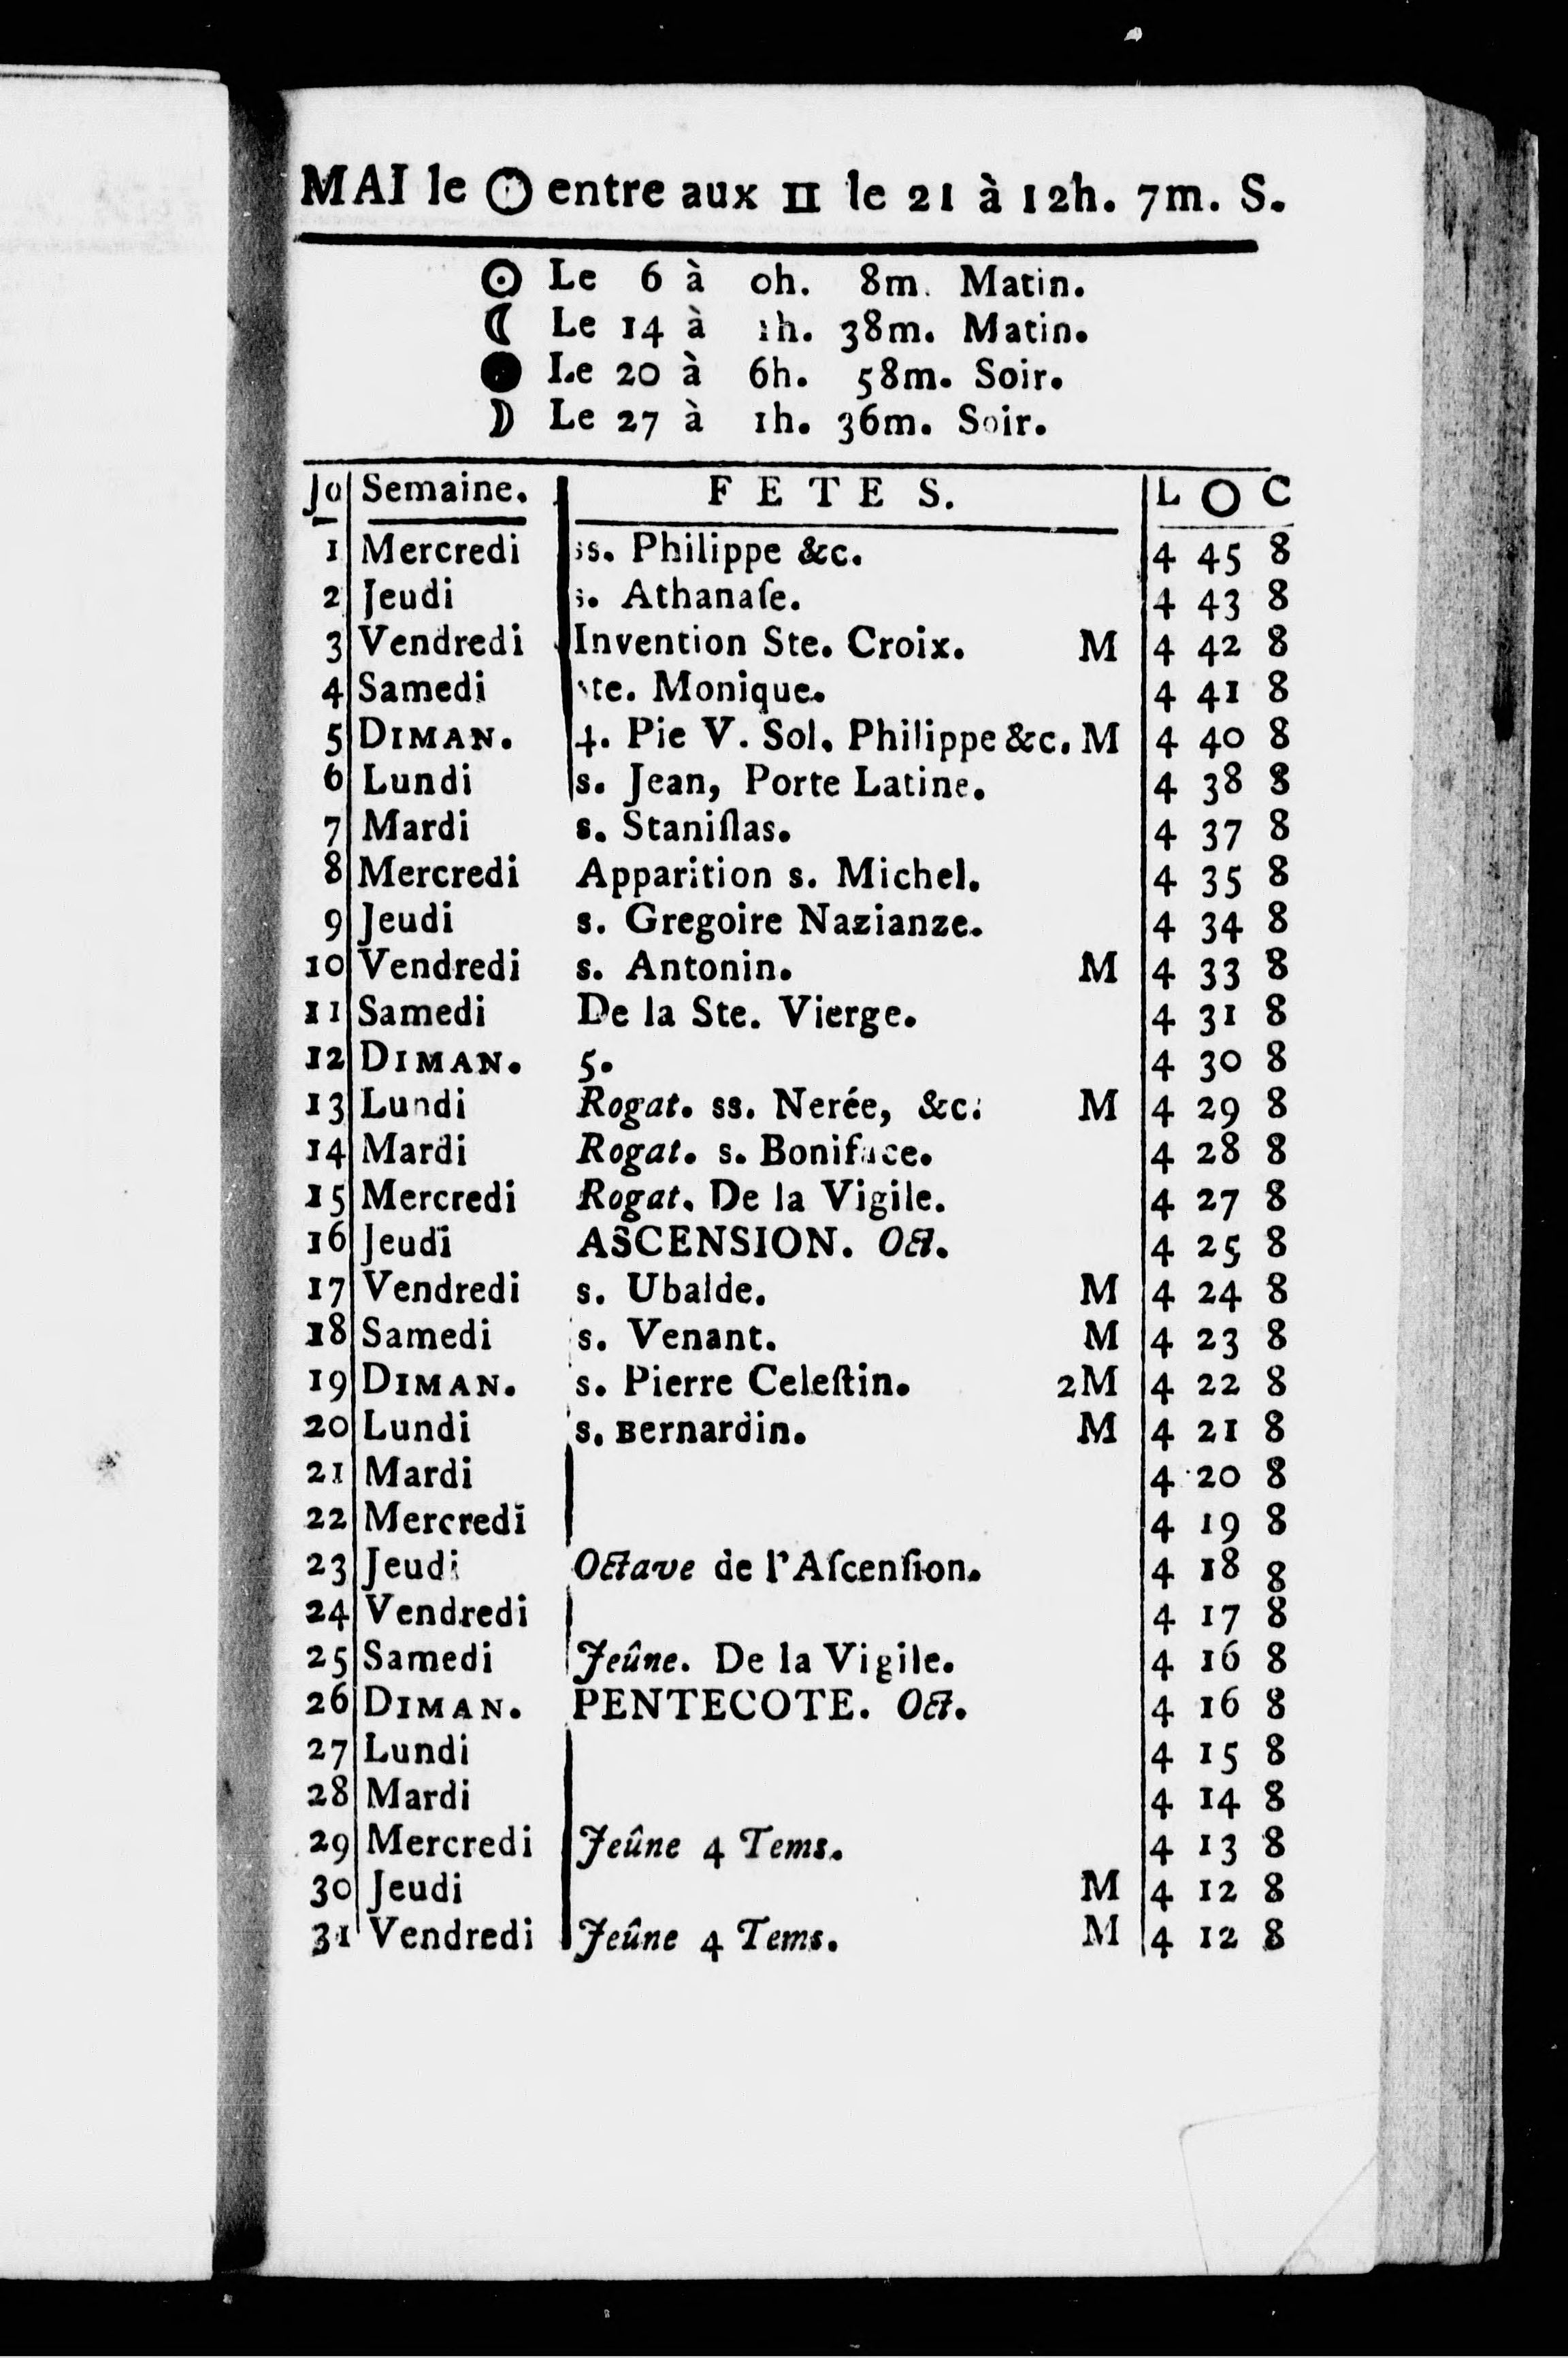 MAI le ☉ entre aux II le 21 à 12h. 7m. S.
☉ Le 6 à 0h. 8m. Matin.
☾ Le 14 à 1h. 38m. Matin.
● Le 20 à 6h. 58m. Soir.
☽ Le 27 à 1h. 36m. Soir.
Jo Semaine. FETES. L O C
1 Mercredi ss. Philippe &c. 4 45 8
2 Jeudi s. Athanaſe. 4 43 8
3 Vendredi Invention Ste. Croix. M 4 42 8
4 Samedi ste. Monique. 4 41 8
5 DIMAN. 4. Pie V. Sol. Philippe &c. M 4 40 8
6 Lundi s. Jean, Porte Latine. 4 38 8
7 Mardi s. Staniſlas. 4 37 8
8 Mercredi Apparition s. Michel. 4 35 8
9 Jeudi s. Gregoire Nazianze. 4 34 8
10 Vendredi s. Antonin. M 4 33 8
11 Samedi De la Ste. Vierge. 4 31 8
12 DIMAN. 5. 4 30 8
13 Lundi Rogat. ss. Nerée, &c. M 4 29 8
14 Mardi Rogat. s. Boniface. 4 28 8
15 Mercredi Rogat. De la Vigile. 4 27 8
16 Jeudi ASCENSION. Oct. 4 25 8
17 Vendredi s. Ubalde. M 4 24 8
18 Samedi s. Venant. M 4 23 8
19 DIMAN. s. Pierre Celeſtin. 2M 4 22 8
20 Lundi s. Bernardin. M 4 21 8
21 Mardi 4 20 8
22 Mercredi 4 19 8
23 Jeudi Octave de l'Aſcenſion. 4 18 8
24 Vendredi 4 17 8
25 Samedi Jeûne. De la Vigile. 4 16 8
26 DIMAN. PENTECOTE. Oct. 4 16 8
27 Lundi 4 15 8
28 Mardi 4 14 8
29 Mercredi Jeûne 4 Tems. 4 13 8
30 Jeudi M 4 12 8
31 Vendredi Jeûne 4 Tems. M 4 12 8